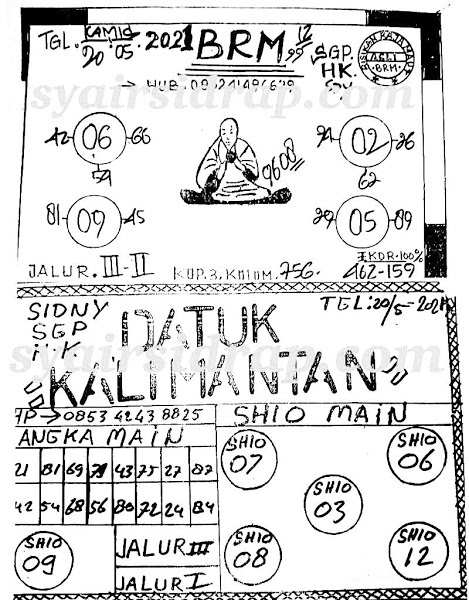 TGL. KAMIS 20 05. 2021 BRM
SGP.
HK.
BISIKAN RAJA MAUT
ASLI
BRM
syairsidrap.com
42 06 66
54
9608
21 02 26
62
81 09 45
29 05 89
JALUR. III-II
KOP. 3. KOLOM. 756.
KDR. 100%
462-159
SIDNY
SGP
H.K.
TGL: 20/5-2021
DATUK
syairsidrap.com
"KALIMANTAN"
HP → 0853 4243 8825
SHIO MAIN
ANGKA MAIN
21 81 69 79 43 75 27 87
42 54 68 56 80 72 24 84
SHIO 07
SHIO 06
SHIO 03
SHIO 08
SHIO 12
SHIO 09
JALUR III
JALUR I